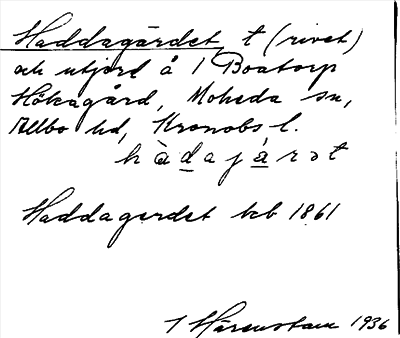 Haddagärdet t (rivet)
och utjord å 1 Boatorp
Hökagård, Moheda sn,
Allbo hd, Kronobs l.
hàdajárət
Haddagerdet kb 1861
J Härenstam 1936